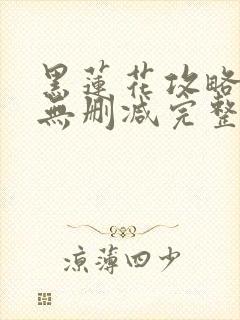 黑蓮花攻略
無刪減完整
涼薄四少